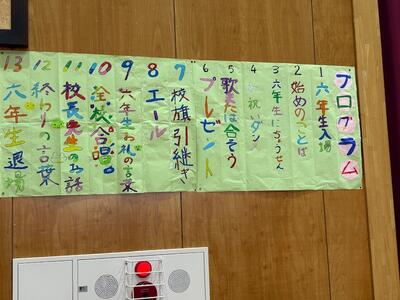 プログラム
1 六年生入場
2 始めのことば
3 六年生にちょうせん
4 お祝いダン
5 歌または合そう
6 プレゼント
7 校旗引継ぎ
8 エール
9 六年生お礼の言葉
10 全校合唱
11 校長先生のお話
12 終わりの言葉
13 六年生退場